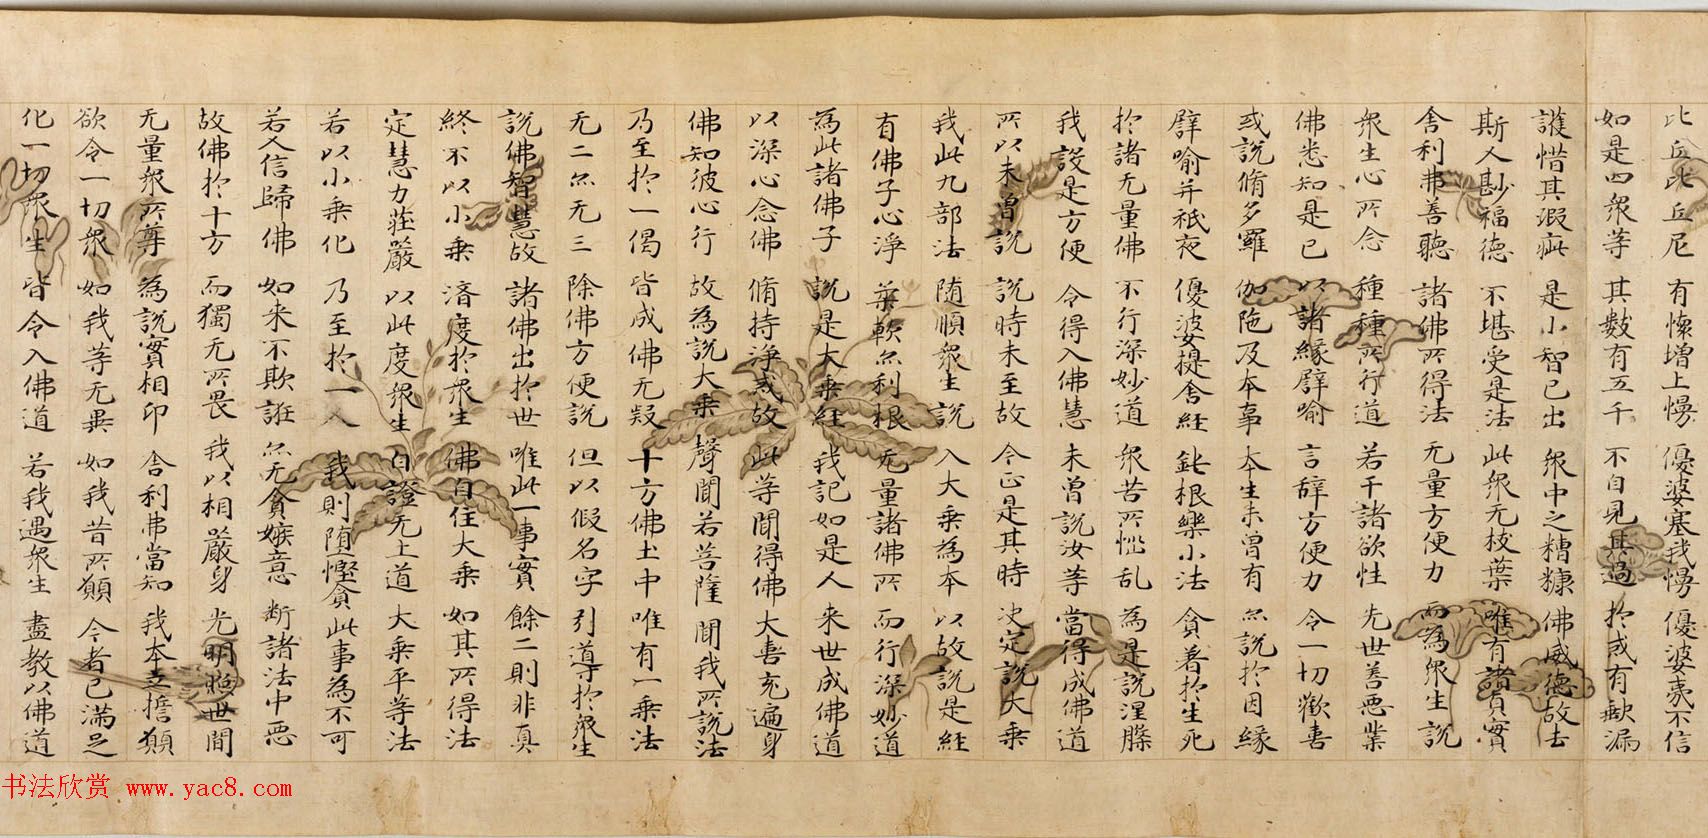 比丘比丘尼 有懷增上慢 優婆塞我慢 優婆夷不信
如是四衆等 其數有五千 不自見其過 於戒有缺漏
護惜其瑕疵 是小智已出 衆中之糟糠 佛威德故去
斯人尠福德 不堪受是法 此衆无枝葉 唯有諸貞實
舍利弗善聽 諸佛所得法 无量方便力 而為衆生說
衆生心所念 種種所行道 若干諸欲性 先世善惡業
佛悉知是已 以諸緣譬喻 言辞方便力 令一切歡喜
或說脩多羅 伽陁及本事 本生未曾有 亦說於因緣
譬喻并祇夜 優婆提舍經 鈍根樂小法 貪著於生死
於諸无量佛 不行深妙道 衆苦所惱乱 為是說涅槃
我設是方便 令得入佛慧 未曾說汝等 當得成佛道
所以未曾說 說時未至故 今正是其時 决定說大乗
我此九部法 随順衆生說 入大乗為本 以故說是經
有佛子心淨 柔軟亦利根 无量諸佛所 而行深妙道
為此諸佛子 說是大乗經 我記如是人 来世成佛道
以深心念佛 脩持淨戒故 此等聞得佛 大喜充遍身
佛知彼心行 故為說大乗 聲聞若菩薩 聞我所說法
乃至於一偈 皆成佛无疑 十方佛土中 唯有一乗法
无二亦无三 除佛方便說 但以假名字 引導於衆生
說佛智慧故 諸佛出於世 唯此一事實 餘二則非真
終不以小乗 濟度於衆生 佛自住大乗 如其所得法
定慧力莊嚴 以此度衆生 自證无上道 大乗平等法
若以小乗化 乃至於一人 我則墮慳貪 此事為不可
若人信歸佛 如来不欺誑 亦无貪嫉意 断諸法中惡
故佛於十方 而獨无所畏 我以相嚴身 光明照世間
无量衆所尊 為說實相印 舍利弗當知 我本立擔願
欲令一切衆 如我等无異 如我昔所願 今者已滿足
化一切衆生 皆令入佛道 若我遇衆生 盡教以佛道
书法欣赏 www.yac8.com